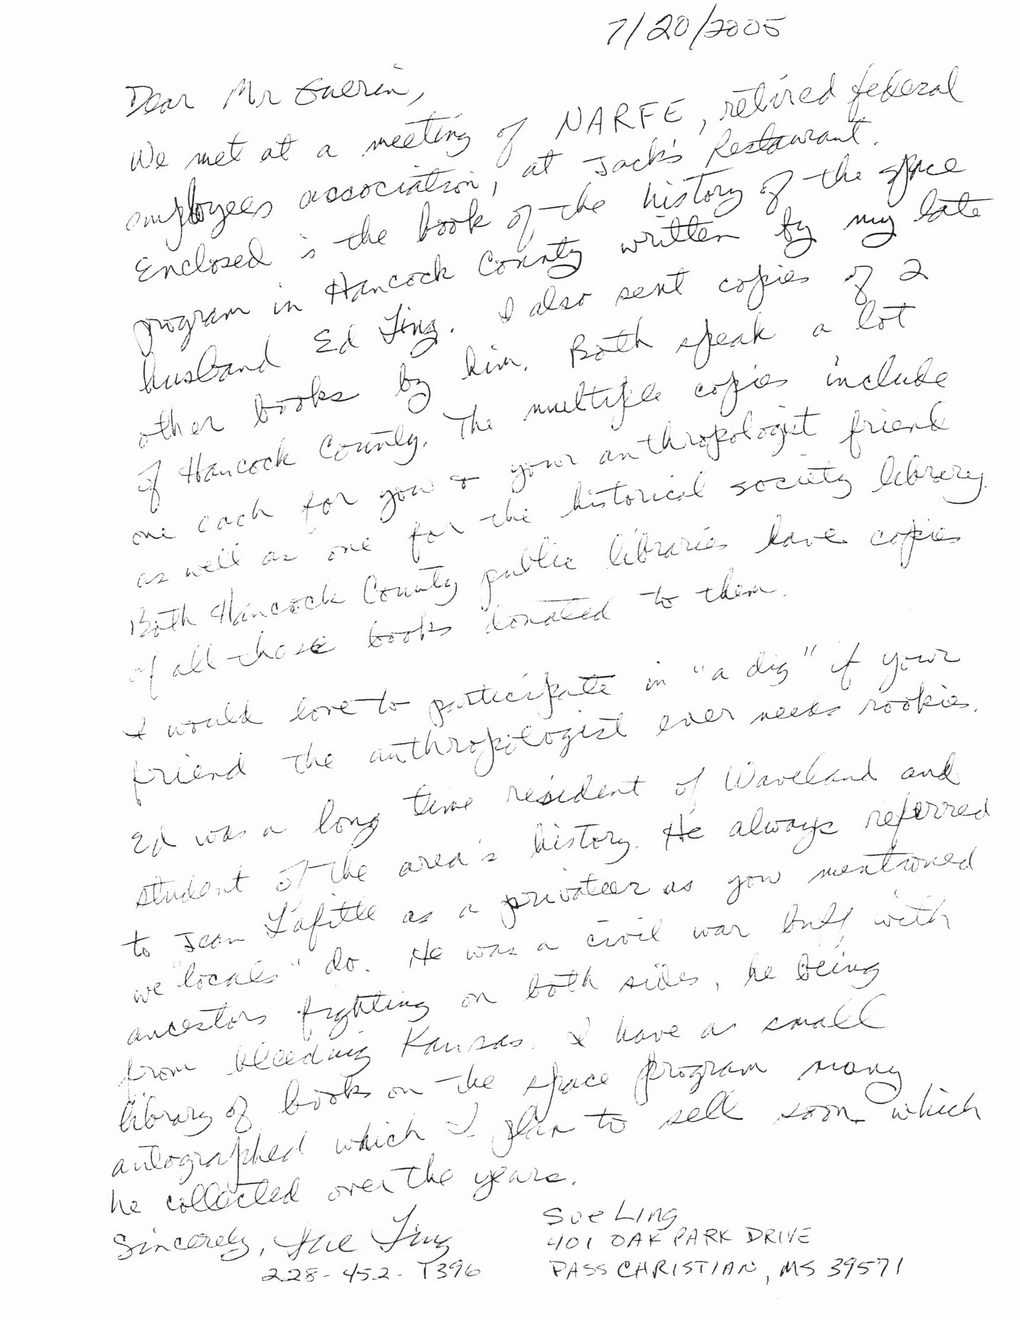 7/20/2005
Dear Mr Guerin,
We met at a meeting of NARFE, retired federal
employees association, at Jack's Restaurant.
Enclosed is the book of the history of the space
program in Hancock County written by my late
husband Ed Ling. I also sent copies of 2
other books by him. Both speak a lot
of Hancock County. The multiple copies include
one each for you & your anthropologist friend
as well as one for the historical society library.
Both Hancock County public libraries have copies
of all those books donated to them.
I would love to participate in "a dig" if your
friend the anthropologist ever needs rookies.
Ed was a long time resident of Waveland and
student of the area's history. He always referred
to Jean Lafitte as a privateer as you mentioned
we "locals" do. He was a civil war buff with
ancestors fighting on both sides, he being
from bleeding Kansas. I have a small
library of books on the space program many
autographed which I plan to sell soon which
he collected over the years.
Sincerely, Sue Ling
228-452-1396
Sue Ling
401 OAK PARK DRIVE
PASS CHRISTIAN, MS 39571